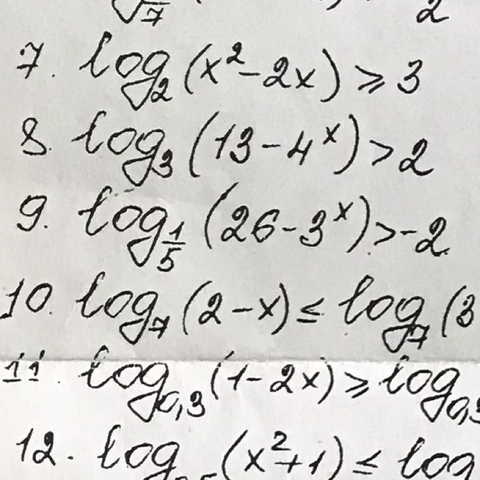 7. log₂(x²-2x)⩾3
8. log₃(13-4ˣ)>2
9. log_{1/5}(26-3ˣ)>-2
10. log₇(2-x)≤log₇(3
11. log₀,₃(1-2x)⩾log₀,₃
12. log(x²+1)≤log